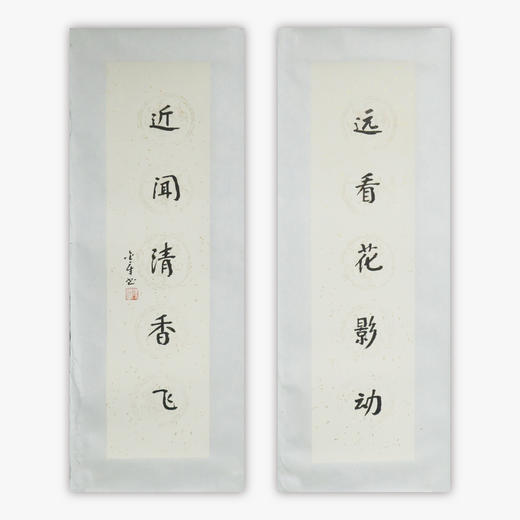 远看花影动
近闻清香飞